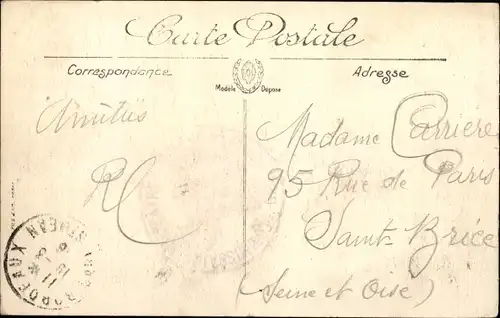 Carte Postale
Correspondance
Adresse
Modèle Déposé
Amitiés
RC
Madame Carrière
95 Rue de Paris
Saint Brice
(Seine et Oise)
BORDEAUX